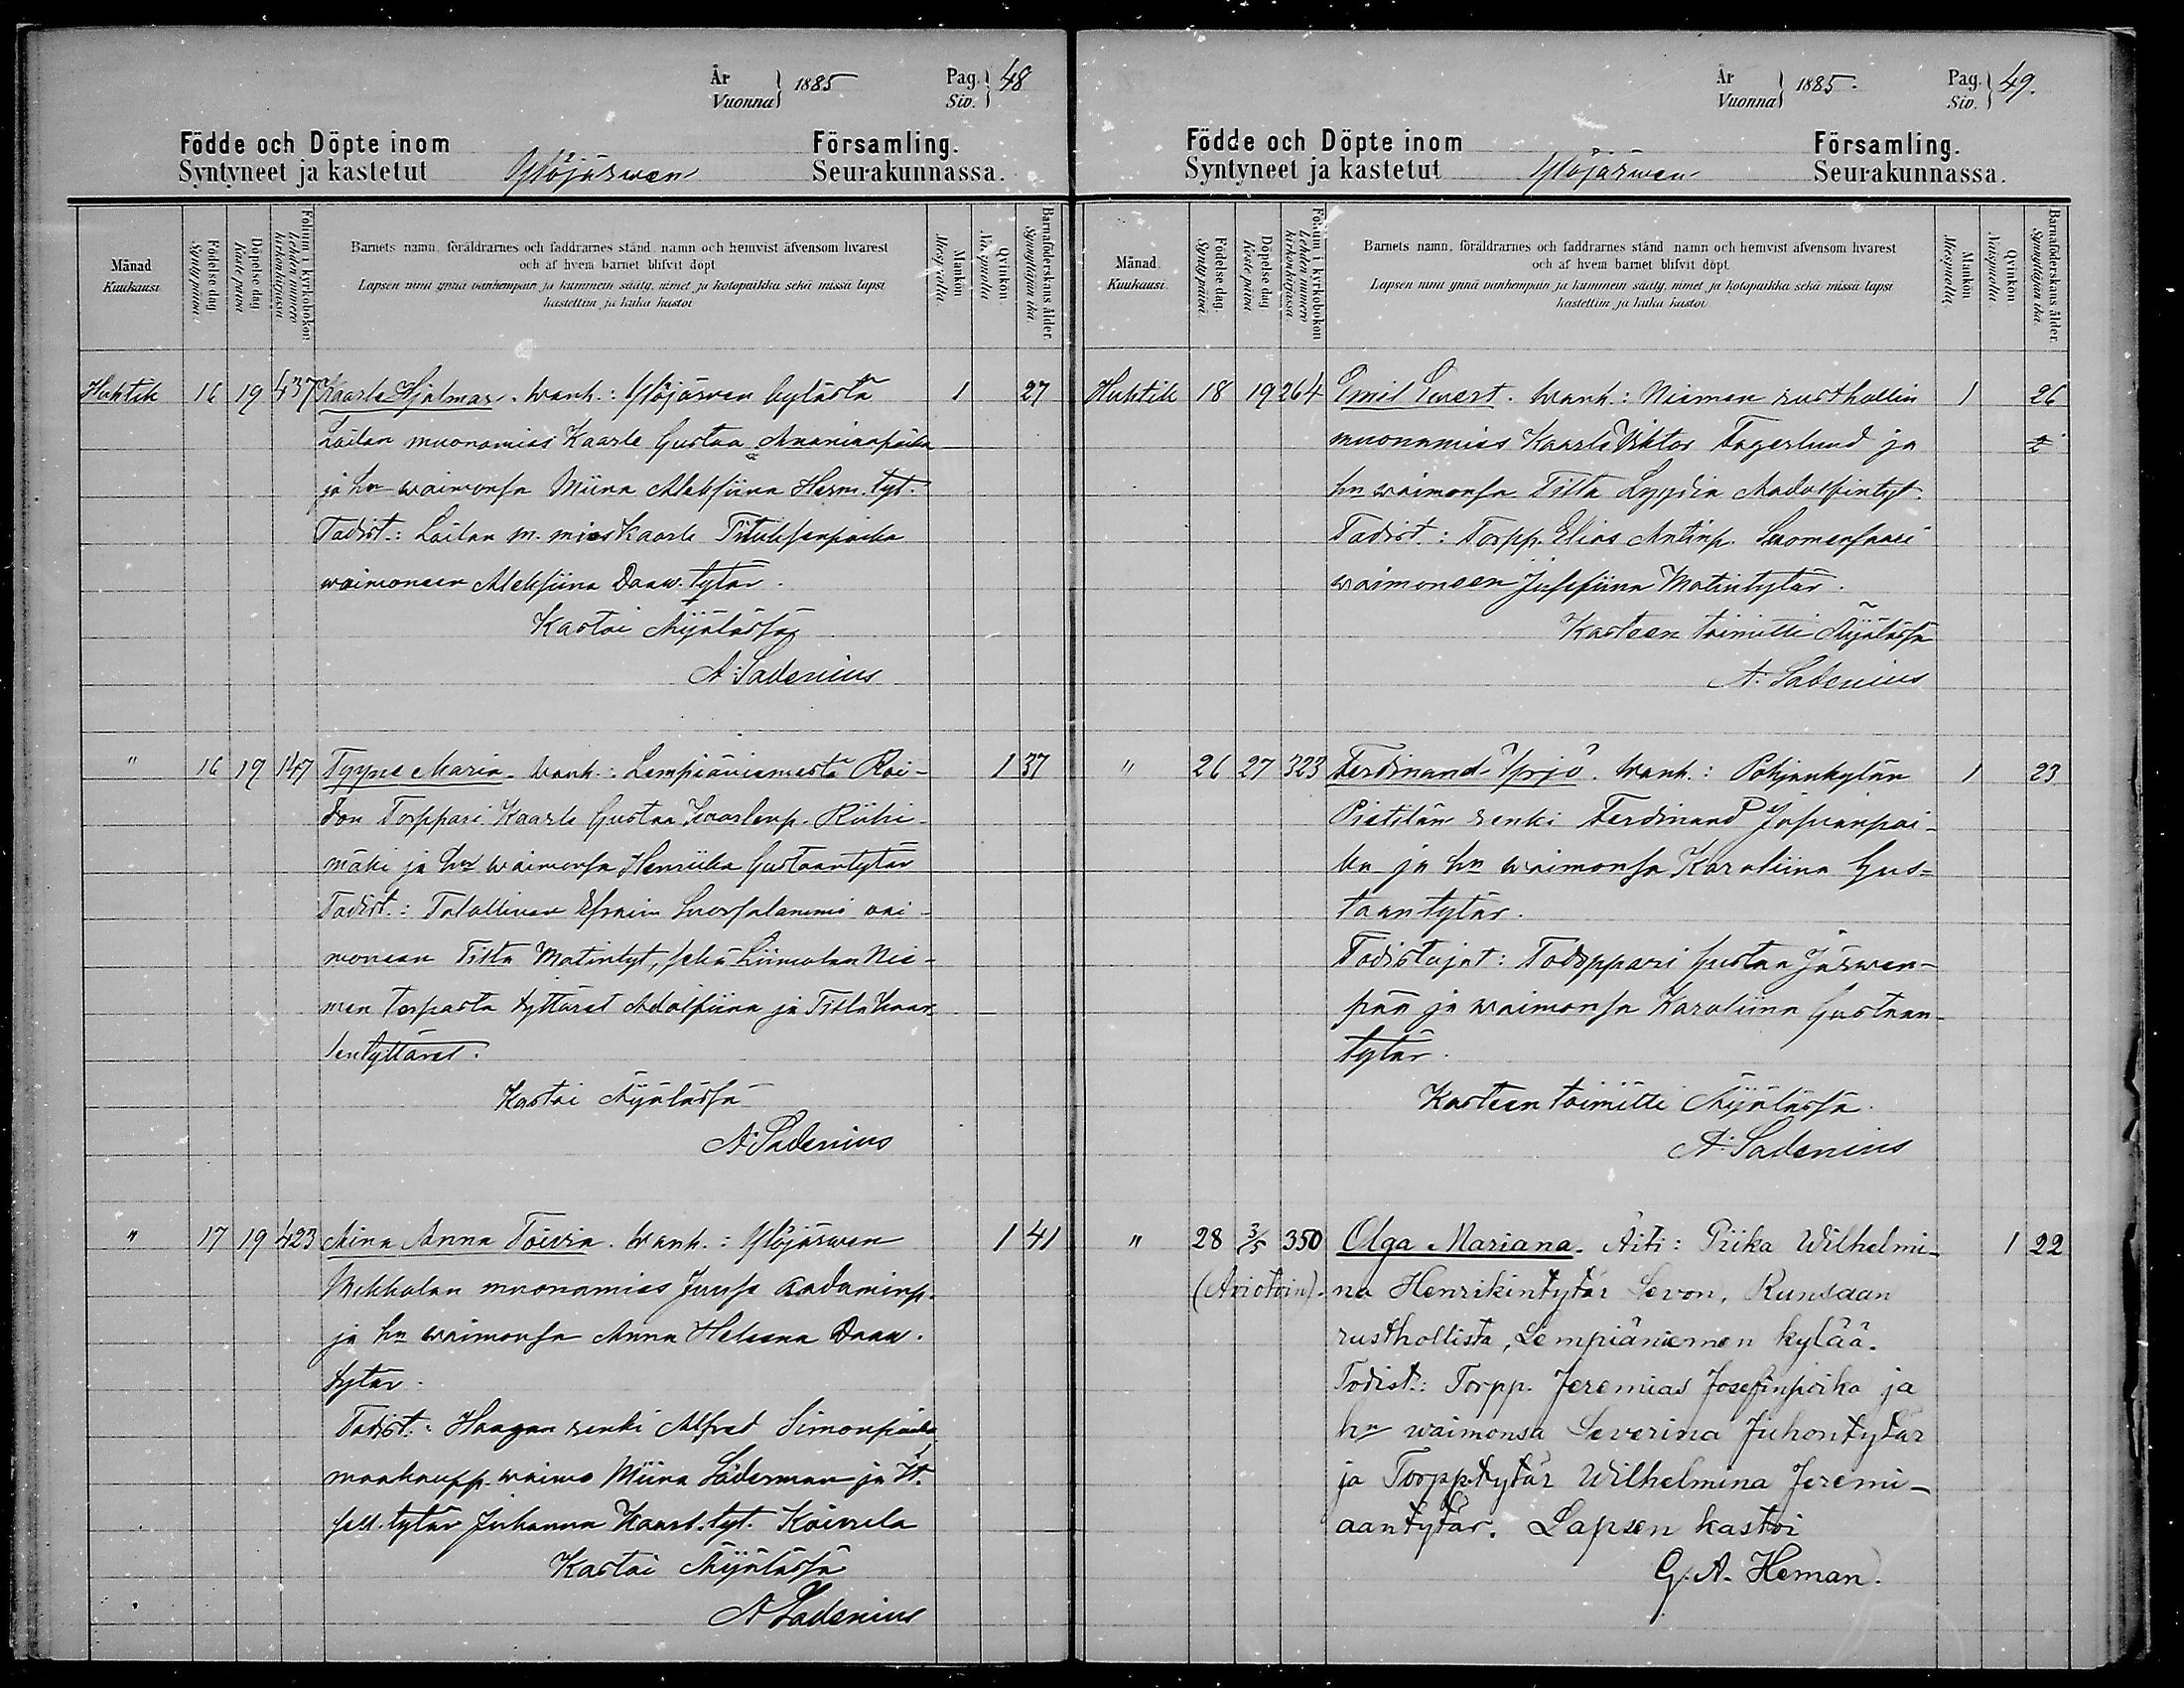 År 1885 Pag. 48
Vuonna Siv.
Födde och Döpte inom Församling.
Syntyneet ja kastetut Ylöjärwen Seurakunnassa.
Månad
Kuukausi.
Födelse dag.
Syntypäivä.
Döpelse dag
Kaste päivä
Folium i kyrkoboken
Lehden numero kirkonkirjassa.
Barnets namn, föräldrarnes och faddrarnes stånd, namn och hemvist äfvensom hvarest
och af hvem barnet blifvit döpt.
Lapsen nimi ynnä vanhempain ja kummein sääty, nimet ja kotopaikka sekä missä lapsi
kastettiin ja kuka kastoi.
Mankön
Miespuolia.
Qvinkön
Naispuolia.
Barnaföderskans ålder.
Synnyttäjän ikä.
Huhtik 16 19 437 Kaarle Hjalmar. Wanh.: Ylöjärwen kylästä 1 27
Lailan muonamies Kaarle Gustaa Ananianpoika
ja hn waimonsa Miina Aleksiina Herm. tyt.
Todist.: Lailan m. mies Kaarle Tituksenpoika
waimoneen Aleksiina Daaw. tytär.
Kastoi Äijälässä
A. Sadenius
" 16 19 147 Tyyne Maria. Wanh.: Lempiäniemestä Roi- 1 37
don Torppari Kaarle Gustaa Kaarlenp. Riihi-
mäki ja hn waimonsa Henriika Gustaantytär
Todist.: Talollinen Efraim wai-
moneen Tilta Matintyt, sekä Liimolan Nie-
men torpasta tyttäret Adolfiina ja Tilta Kaar-
lentyttäret.
Kastoi Äijälässä
A. Sadenius
" 17 19 423 Aina Anna Toivia. Wanh.: Ylöjärwen 1 41
Mikkolan muonamies Juuse Aadaminp.
ja hn waimonsa Anna Heleena Daaw.
tytär.
Todist.: Haagan renki Alfred Simonpoika
maakaupp. waimo Miina Söderman ja It.
sell. tytär Juhanna Kaarl. tyt. Koivula
Kastoi Äijälässä
A. Sadenius
År 1885. Pag. 49.
Vuonna Siv.
Födde och Döpte inom Församling.
Syntyneet ja kastetut Ylöjärwen Seurakunnassa.
Månad.
Kuukausi.
Födelse dag.
Syntypäivä.
Döpelse dag
Kaste päivä
Folium i kyrkoboken
Lehden numero kirkonkirjassa.
Barnets namn, föräldrarnes och faddrarnes stånd, namn och hemvist äfvensom hvarest
och af hvem barnet blifvit döpt.
Lapsen nimi ynnä vanhempain ja kummein sääty, nimet ja kotopaikka sekä missä lapsi
kastettiin ja kuka kastoi.
Mankön
Miespuolia.
Qvinkön
Naispuolia.
Barnaföderskans ålder.
Synnyttäjän ikä.
Huhtik 18 19 264 Emil Ewert. Wanh.: Niemen rusthollin 1 26
muonamies Kaarle Viktor Fagerlund ja
hn waimonsa Tilta Lyydia Aadolfintyt.
Todist.: Torpp. Elias Antinp. Suomensaari
waimoneen Josefiina Matintytär.
Kasteen toimitti Äijälässä
A. Sadenius
" 26 27 323 Ferdinand Yrjö. Wanh.: Pohjankylän 1 23
Pietilän renki Ferdinand Josuanpoi-
ka ja hn waimonsa Karoliina Gus-
taantytär.
Todistajat: Todppari Gustaa Järwen-
pää ja waimonsa Karoliina Gustaan-
tytär.
Kasteen toimitti Äijälässä.
A. Sadenius
" 28 3/5 350 Olga Mariana. Äiti: Piika Wilhelmi- 1 22
(Aviotoin). na Henrikintytär Sevon, Runsaan
rusthollista, Lempiäniemen kylää.
Todist.: Torpp. Jeremias Josefinpoika ja
hn waimonsa Severina Juhontytär
ja Torpp.tytär Wilhelmina Jeremi-
aantytär. Lapsen kastoi
G. A. Heman.